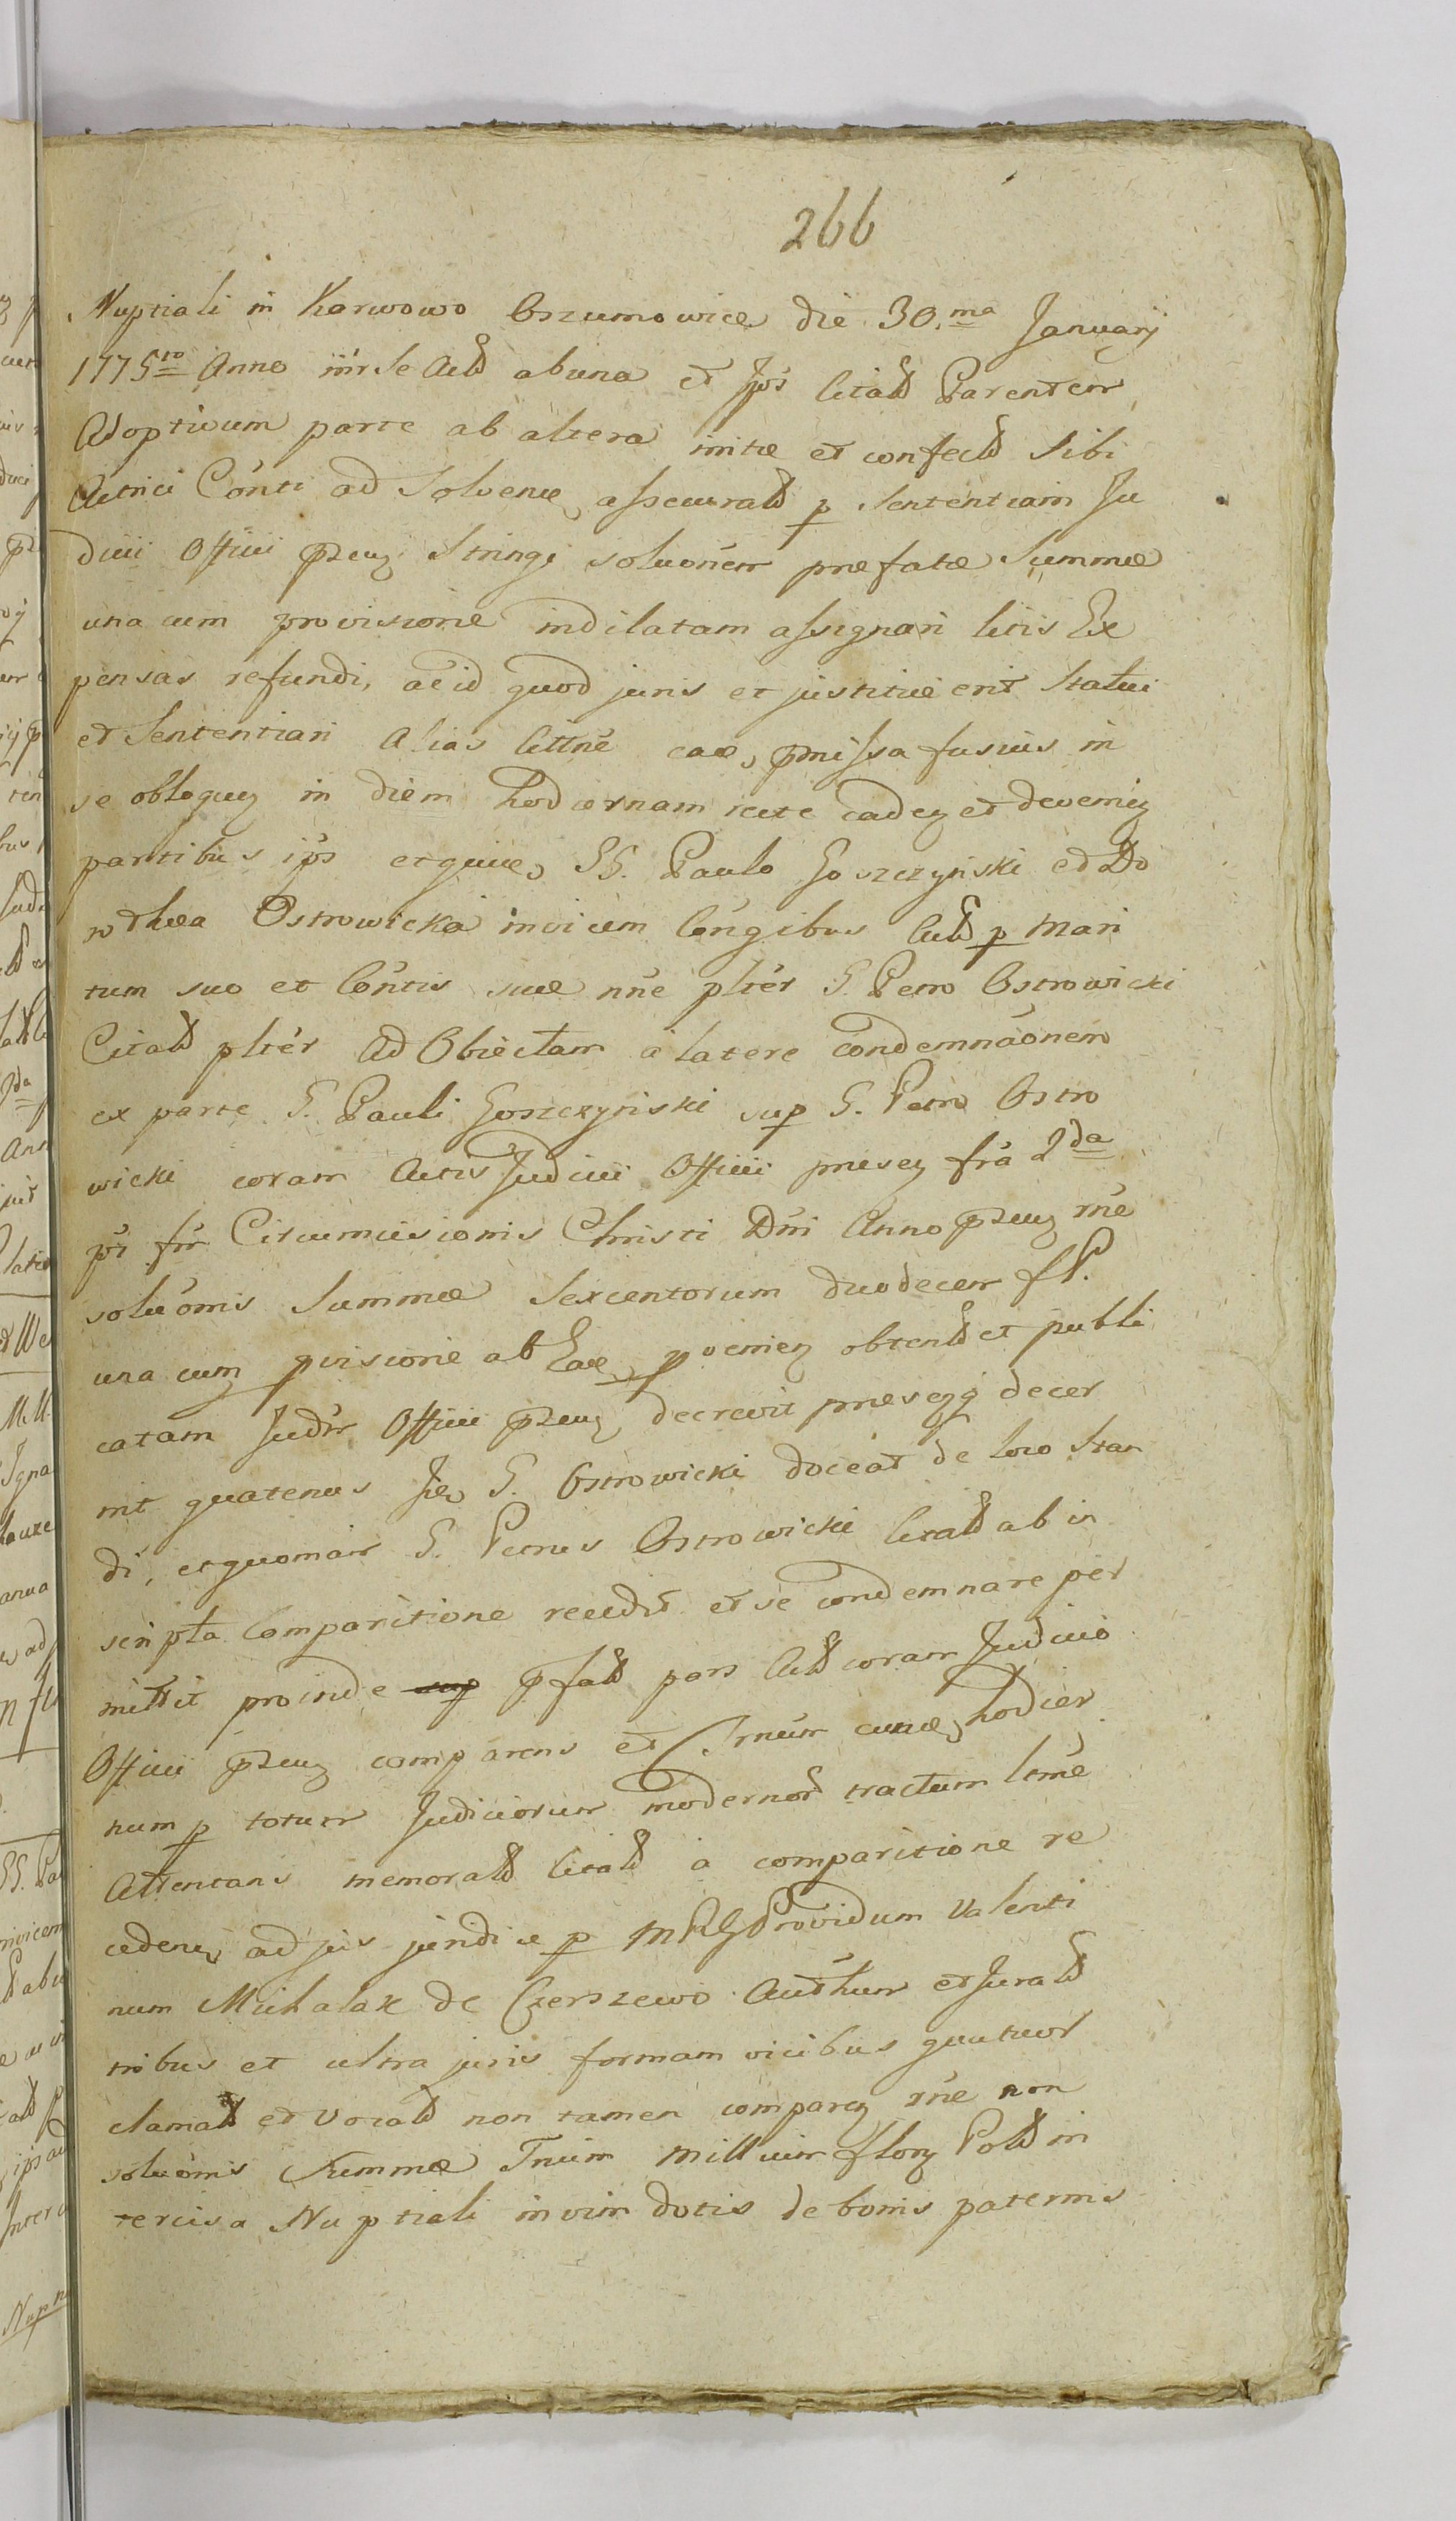 266
Nuptiali in Karwowo Orzumowice die 30.ma Januarij
1775to Anno inr Se Actt ab una et Ips Citatt Parentem
Adoptivum parte ab altera initae et confectt Sibi
Actrici Conti ad Solvene assecuratt p Sententiam Ju
dicii Officii przeuz Stringi soluonem praefatae Summae
una cum provisione indilatam assignari litis Ex
pensas refundi, ac id quod juris et justitiae erit Statui
et Sententiari alias Littne cae, pmissa fusius in
se obloquen in diem hodiernam recte caden et devenien
partibus ips et quive, GG. Paulo Goszczyński et Do
rothea Ostrowicka invicem Congibus Actt p Mari
tum suo et Contis suae nne plter G. Petro Ostrowicki
Citatt plter ad Obiectam a latere condemnaonem
ex parte G. Pauli Goszczyński sup G. Petro Ostro
wicki coram Actis Judicii Officii praesen fra 2da
pt fm Circumcisionis Christi Dni Anno przeuz rne
soluonis Summae Sexcentorum duodecem fP.
una cum pvisione ab Eae, pvenien obtentt et publi
catam Judm Officii przeuz decrevit praesenq decer
nit quatenus Je G. Ostrowicki doceat de loco Stan
di, et quoniam G. Petrus Ostrowicki Citatt ab in
scripta Comparitione recedit et se condemnare per
mittit proinde pfatt pars Actt coram Judicio
Officii przeuz comparens et Tmum cause hodier
num p totum Judiciorum modernor tractum Ltme
Attentans memoratt Citatt a comparitione re
cedene ad jus juridice p Mnrl Providum Valenti
num Michalak de Czerszewo Authum et Juratt
tribus et ultra juris formam vicibus quatuor
clamatt et Vocatt non tamen comparen rne non
soluonis Summae Trium Millium floren Poltt in
tercisa Nuptiali in vim dotis de bonis paternis